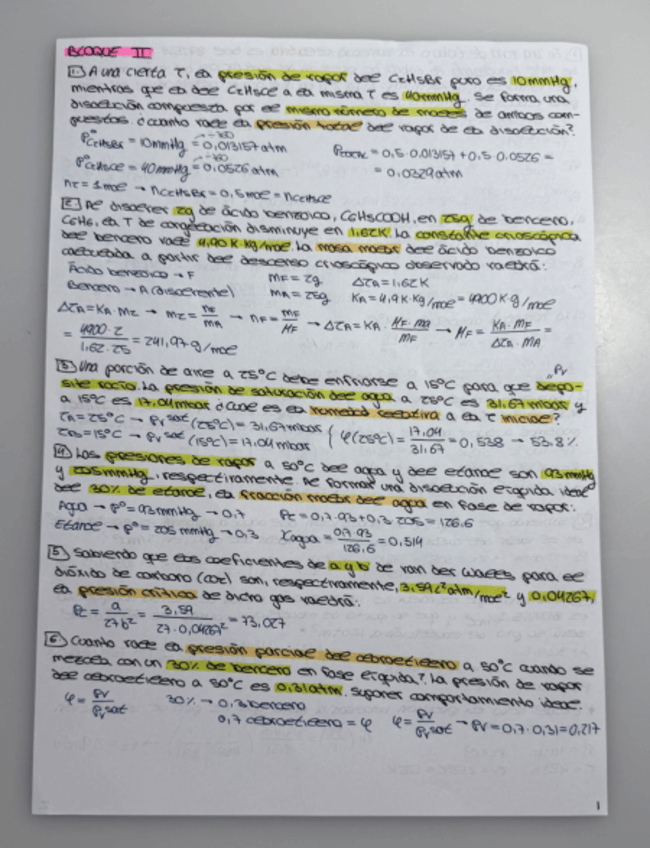 BLOQUE II
1. A una cierta T, la presión de vapor del C2H5Br puro es 10mmHg,
mientras que la del C2H5Cl a la misma T es 40mmHg. Se forma una
disolución compuesta por el mismo número de moles de ambos com-
puestos. ¿Cuánto vale la presión total del vapor de la disolución?
P°C2H5Br = 10mmHg = 0,013157atm
÷760
Ptotal = 0,5·0,013157+0,5·0,0526 =
P°C2H5Cl = 40mmHg = 0,0526atm
÷760
= 0,0329atm
nT = 1mol → nC2H5Br = 0,5mol = nC2H5Cl
2. Al disolver 2g de ácido benzoico, C6H5COOH, en 25g de benceno,
C6H6, la T de congelación disminuye en 1,62K. La constante crioscópica
del benceno vale 4,90K·kg/mol. La masa molar del ácido benzoico
calculada a partir del descenso crioscópico observado valdrá:
Ácido benzoico → F
mF = 2g
ΔTA = 1,62K
Benceno → A (disolvente)
mA = 25g
KA = 4,9K·kg/mol = 4900K·g/mol
= 4900·2 / 1,62·25 = 241,97g/mol
3. Una porción de aire a 25°C debe enfriarse a 15°C para que depo-
site rocío. La presión de saturación del agua a 25°C es 31,67mbar y
"Pv
a 15°C es 17,04mbar ¿cuál es la humedad relativa a la T inicial?
TA = 25°C → Pv sat (25°C) = 31,67mbar
φ(25°C) = 17,04 / 31,67 = 0,538 → 53,8%
15°C → Pv sat (15°C) = 17,04mbar
4. Las presiones de vapor a 50°C del agua y del etanol son 93mmHg
y 205mmHg, respectivamente. Al formar una disolución líquida ideal
del 30% de etanol, la fracción molar del agua en fase de vapor:
Agua → P° = 93mmHg → 0,7
Pt = 0,7·93+0,3·205 = 126,6
Etanol → P° = 205mmHg → 0,3
Xagua = 0,7·93 / 126,6 = 0,514
5. Sabiendo que los coeficientes de a y b de van der Waals para el
dióxido de carbono (CO2) son, respectivamente, 3,59L²atm/mol² y 0,04267,
la presión crítica de dicho gas valdrá:
Pc = a / 27b² = 3,59 / 27·0,04267² = 73,027
6. Cuánto vale la presión parcial del cloroetileno a 50°C cuando se
mezcla con un 30% de benceno en fase líquida?. La presión de vapor
del cloroetileno a 50°C es 0,31atm. Suponer comportamiento ideal.
φ = Pv / Pv sat
30% → 0,3 benceno
0,7 cloroetileno = φ
φ = Pv / Pv sat → Pv = 0,7·0,31 = 0,217
1